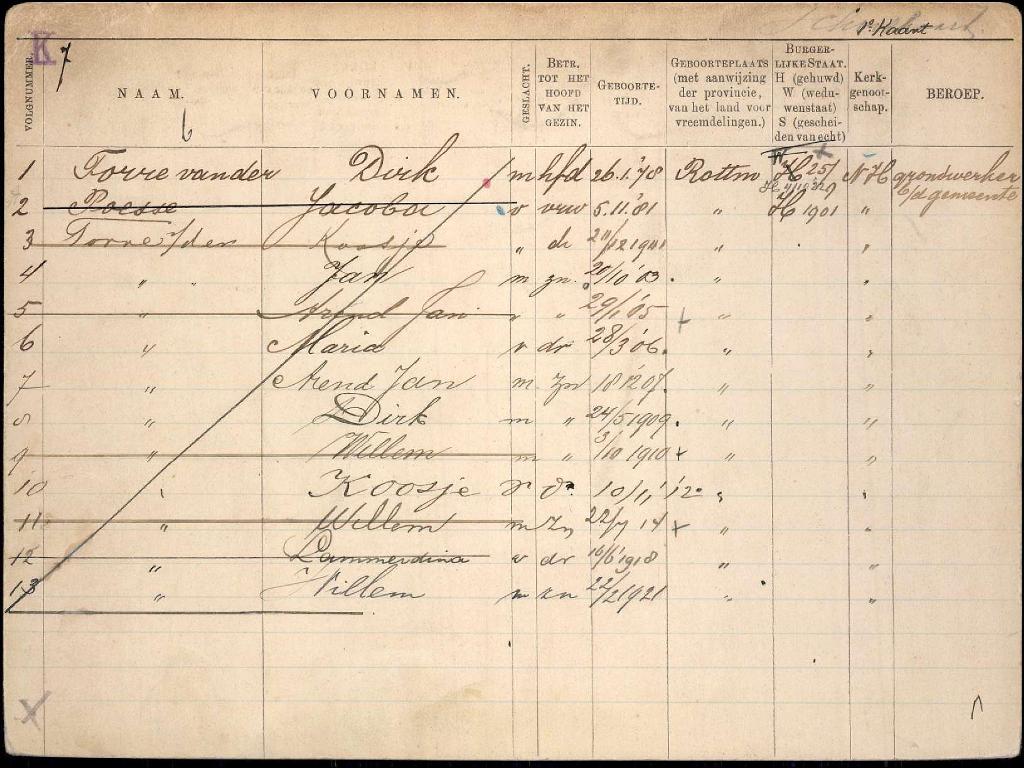 1e Kaart
K 7
VOLGNUMMER. NAAM. VOORNAMEN. GESLACHT. BETR. TOT HET HOOFD VAN HET GEZIN. GEBOORTE-TIJD. GEBOORTEPLAATS (met aanwijzing der provincie, van het land voor vreemdelingen.) BURGER-LIJKE STAAT. H (gehuwd) W (weduwenstaat) S (gescheiden van echt) Kerk-genoot-schap. BEROEP.
6
1 Torre van der Dirk m hfd 26.1.'78 Rottm W H 25/ N H grondwerker
2 Poesse Jacoba v vrw 5.11.'81 " H 1901 " b/d gemeente
3 Torre v/der Koosje " dr " "
4 " " Jan m zn. 20/10 '03. " "
5 " Arend Jan " " 29/1 '05 + " "
6 " Maria v dr 28/3 '06. " "
7 " Arend Jan m zn 18 12 07. " "
8 " Dirk m " 24/5 1909. " "
9 " Willem m " 3/10 1910 + " "
10 " Koosje v d. 10/11 '12. " "
11 " Willem m zn 22/7 14 + " "
12 " Lammerdina v dr 16/6 1918 " "
13 " Willem m zn 22/2 1921 " "